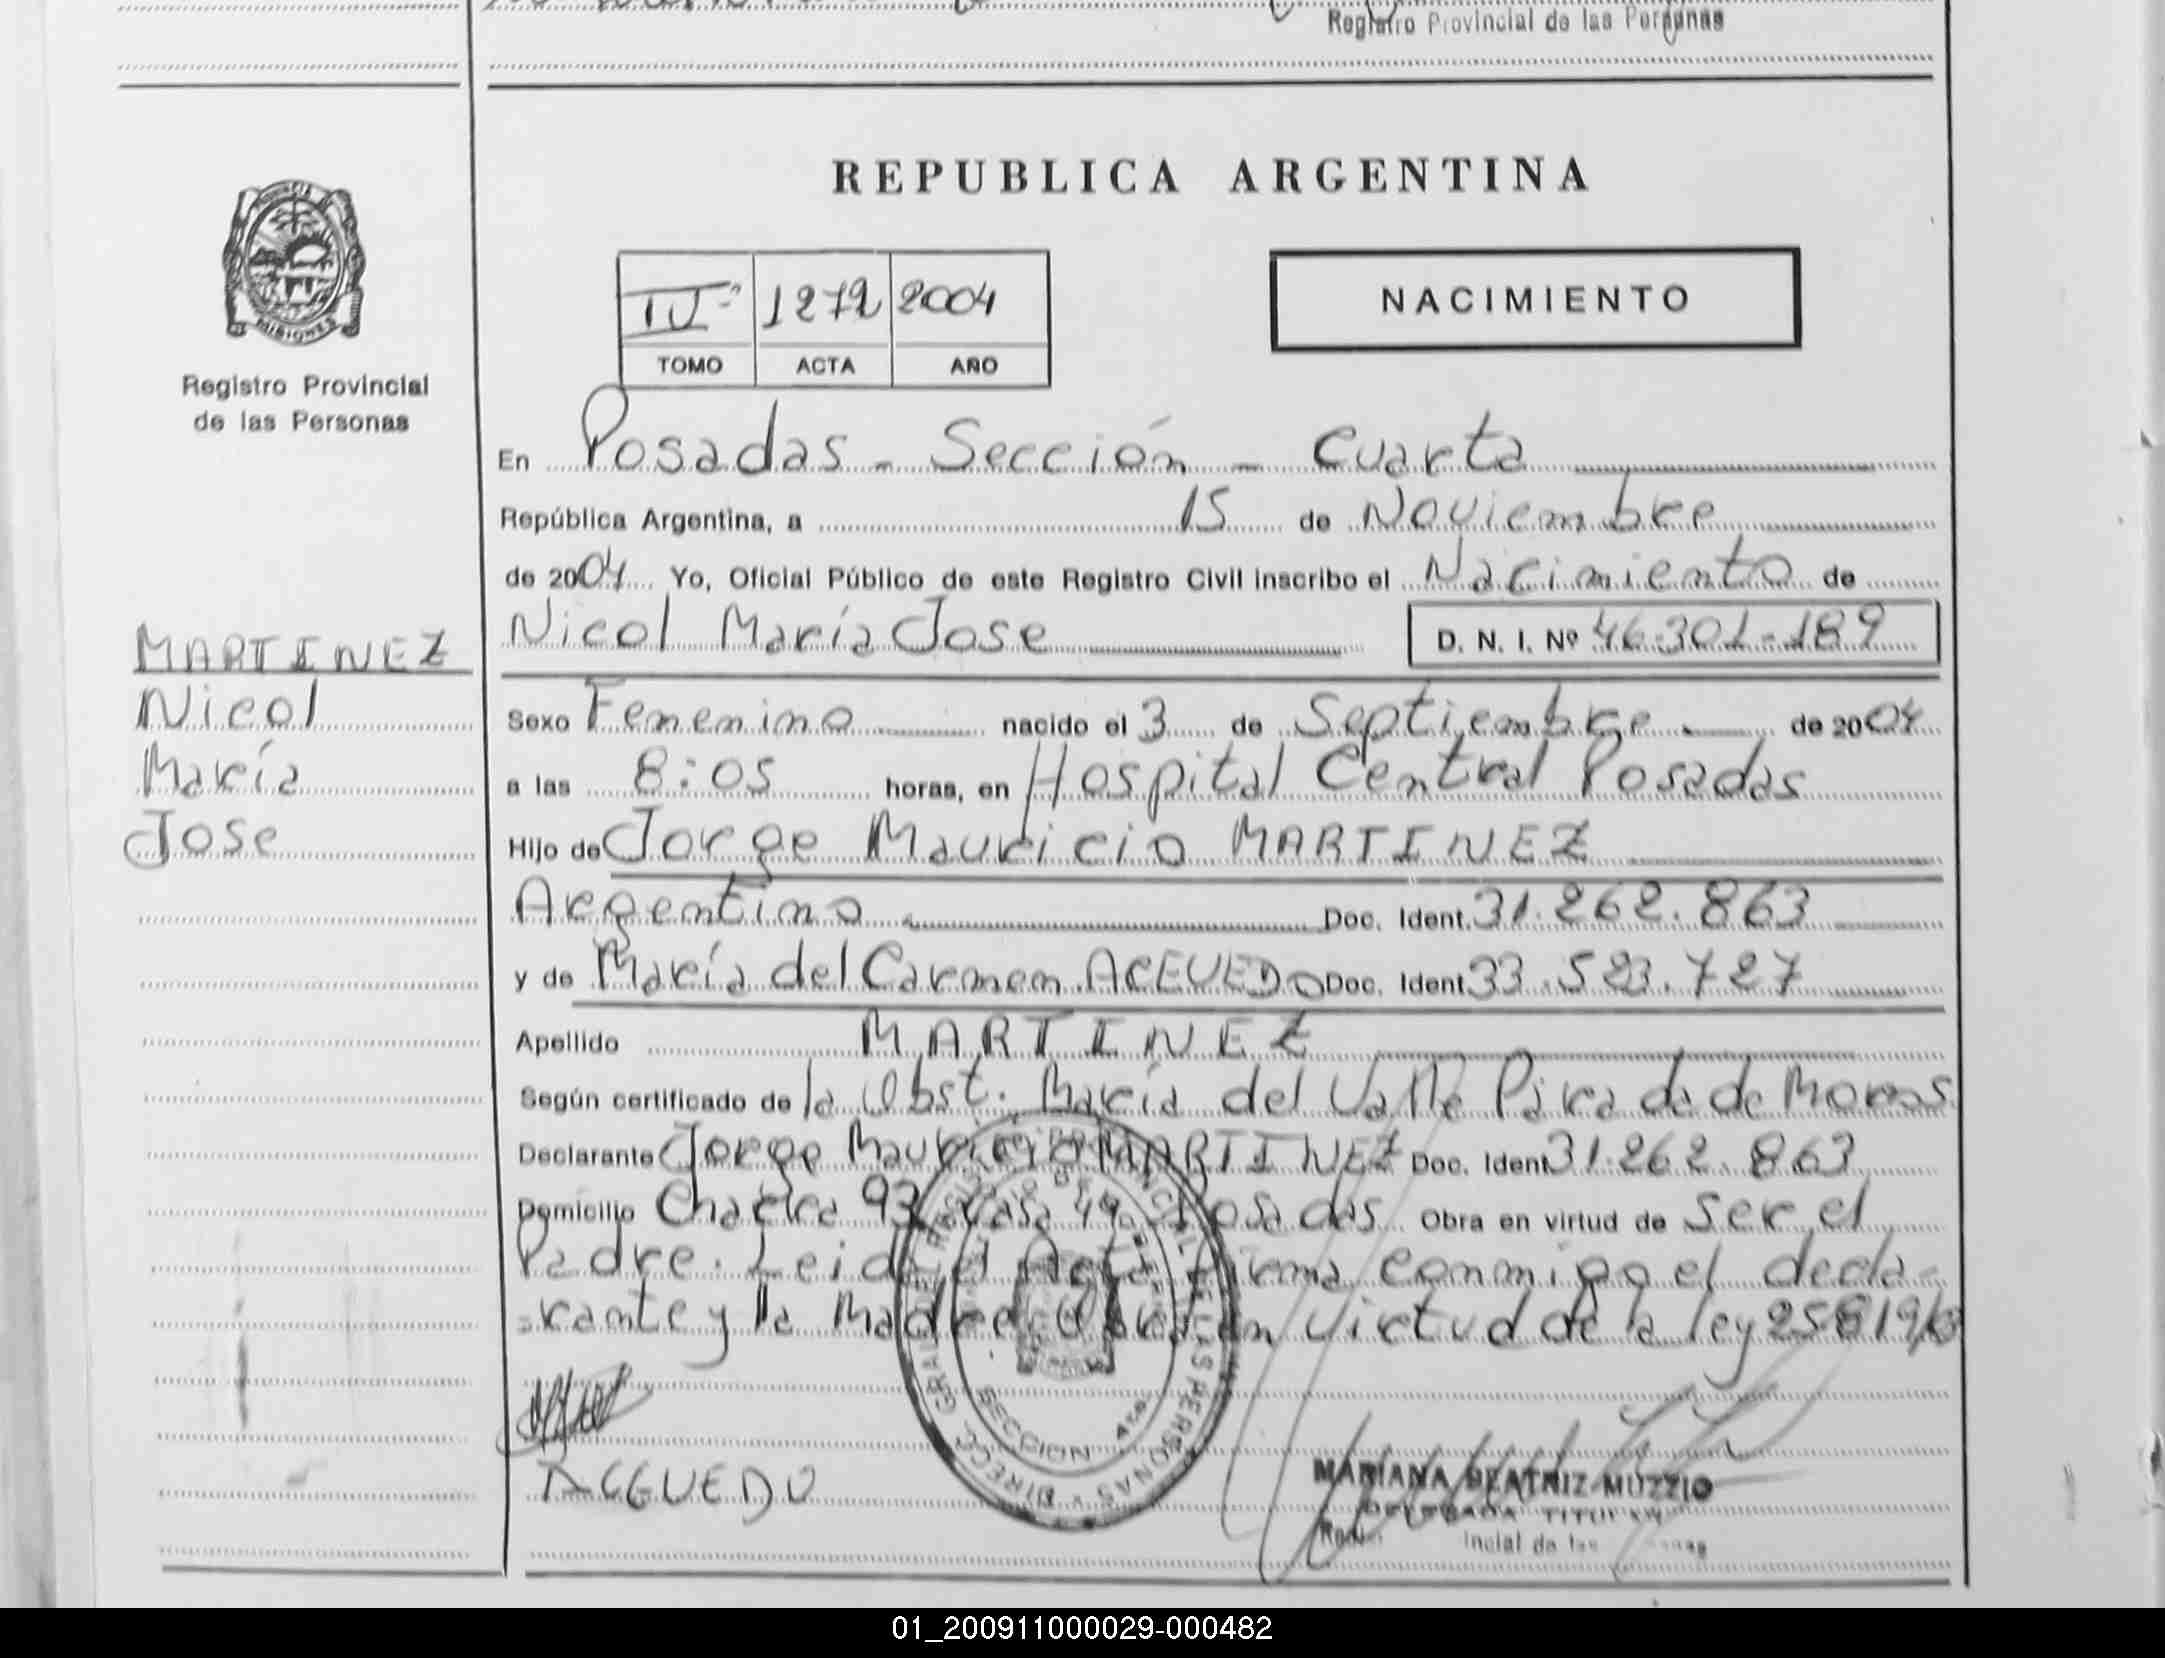 Registro Provincial de las Personas
REPUBLICA ARGENTINA
PROVINCIA
MISIONES
Registro Provincial
de las Personas
1272 2004
TOMO ACTA AÑO
NACIMIENTO
En Posadas - Sección - Cuarta
República Argentina, a 15 de Noviembre
de 2004 Yo, Oficial Público de este Registro Civil inscribo el Nacimiento de
Nicol María Jose D. N. I. Nº 46.301.189
MARTINEZ
Nicol
María
Jose
Sexo Femenino nacido el 3 de Septiembre de 2004
a las 8:05 horas, en Hospital Central Posadas
Hijo de Jorge Mauricio MARTINEZ
Argentino Doc. Ident. 31.262.863
y de María del Carmen ACEVEDO Doc. Ident 33.523.727
Apellido MARTINEZ
Según certificado de la Obst. María del Valle Parada de Moras
Declarante Jorge Mauricio MARTINEZ Doc. Ident 31.262.863
Domicilio Chacra 93 Casa 49 Posadas Obra en virtud de ser el
Padre. Leida el Acta firma conmigo el decla-
-rante y la Madre Obra en virtud de la ley 25819/
ACEVEDO
DIRECC. GRAL. DE REGISTRO PROVINCIAL DE LAS PERSONAS
SECCION 4ta.
MARIANA BEATRIZ MUZZIO
DELEGADA TITULAR
01_200911000029-000482